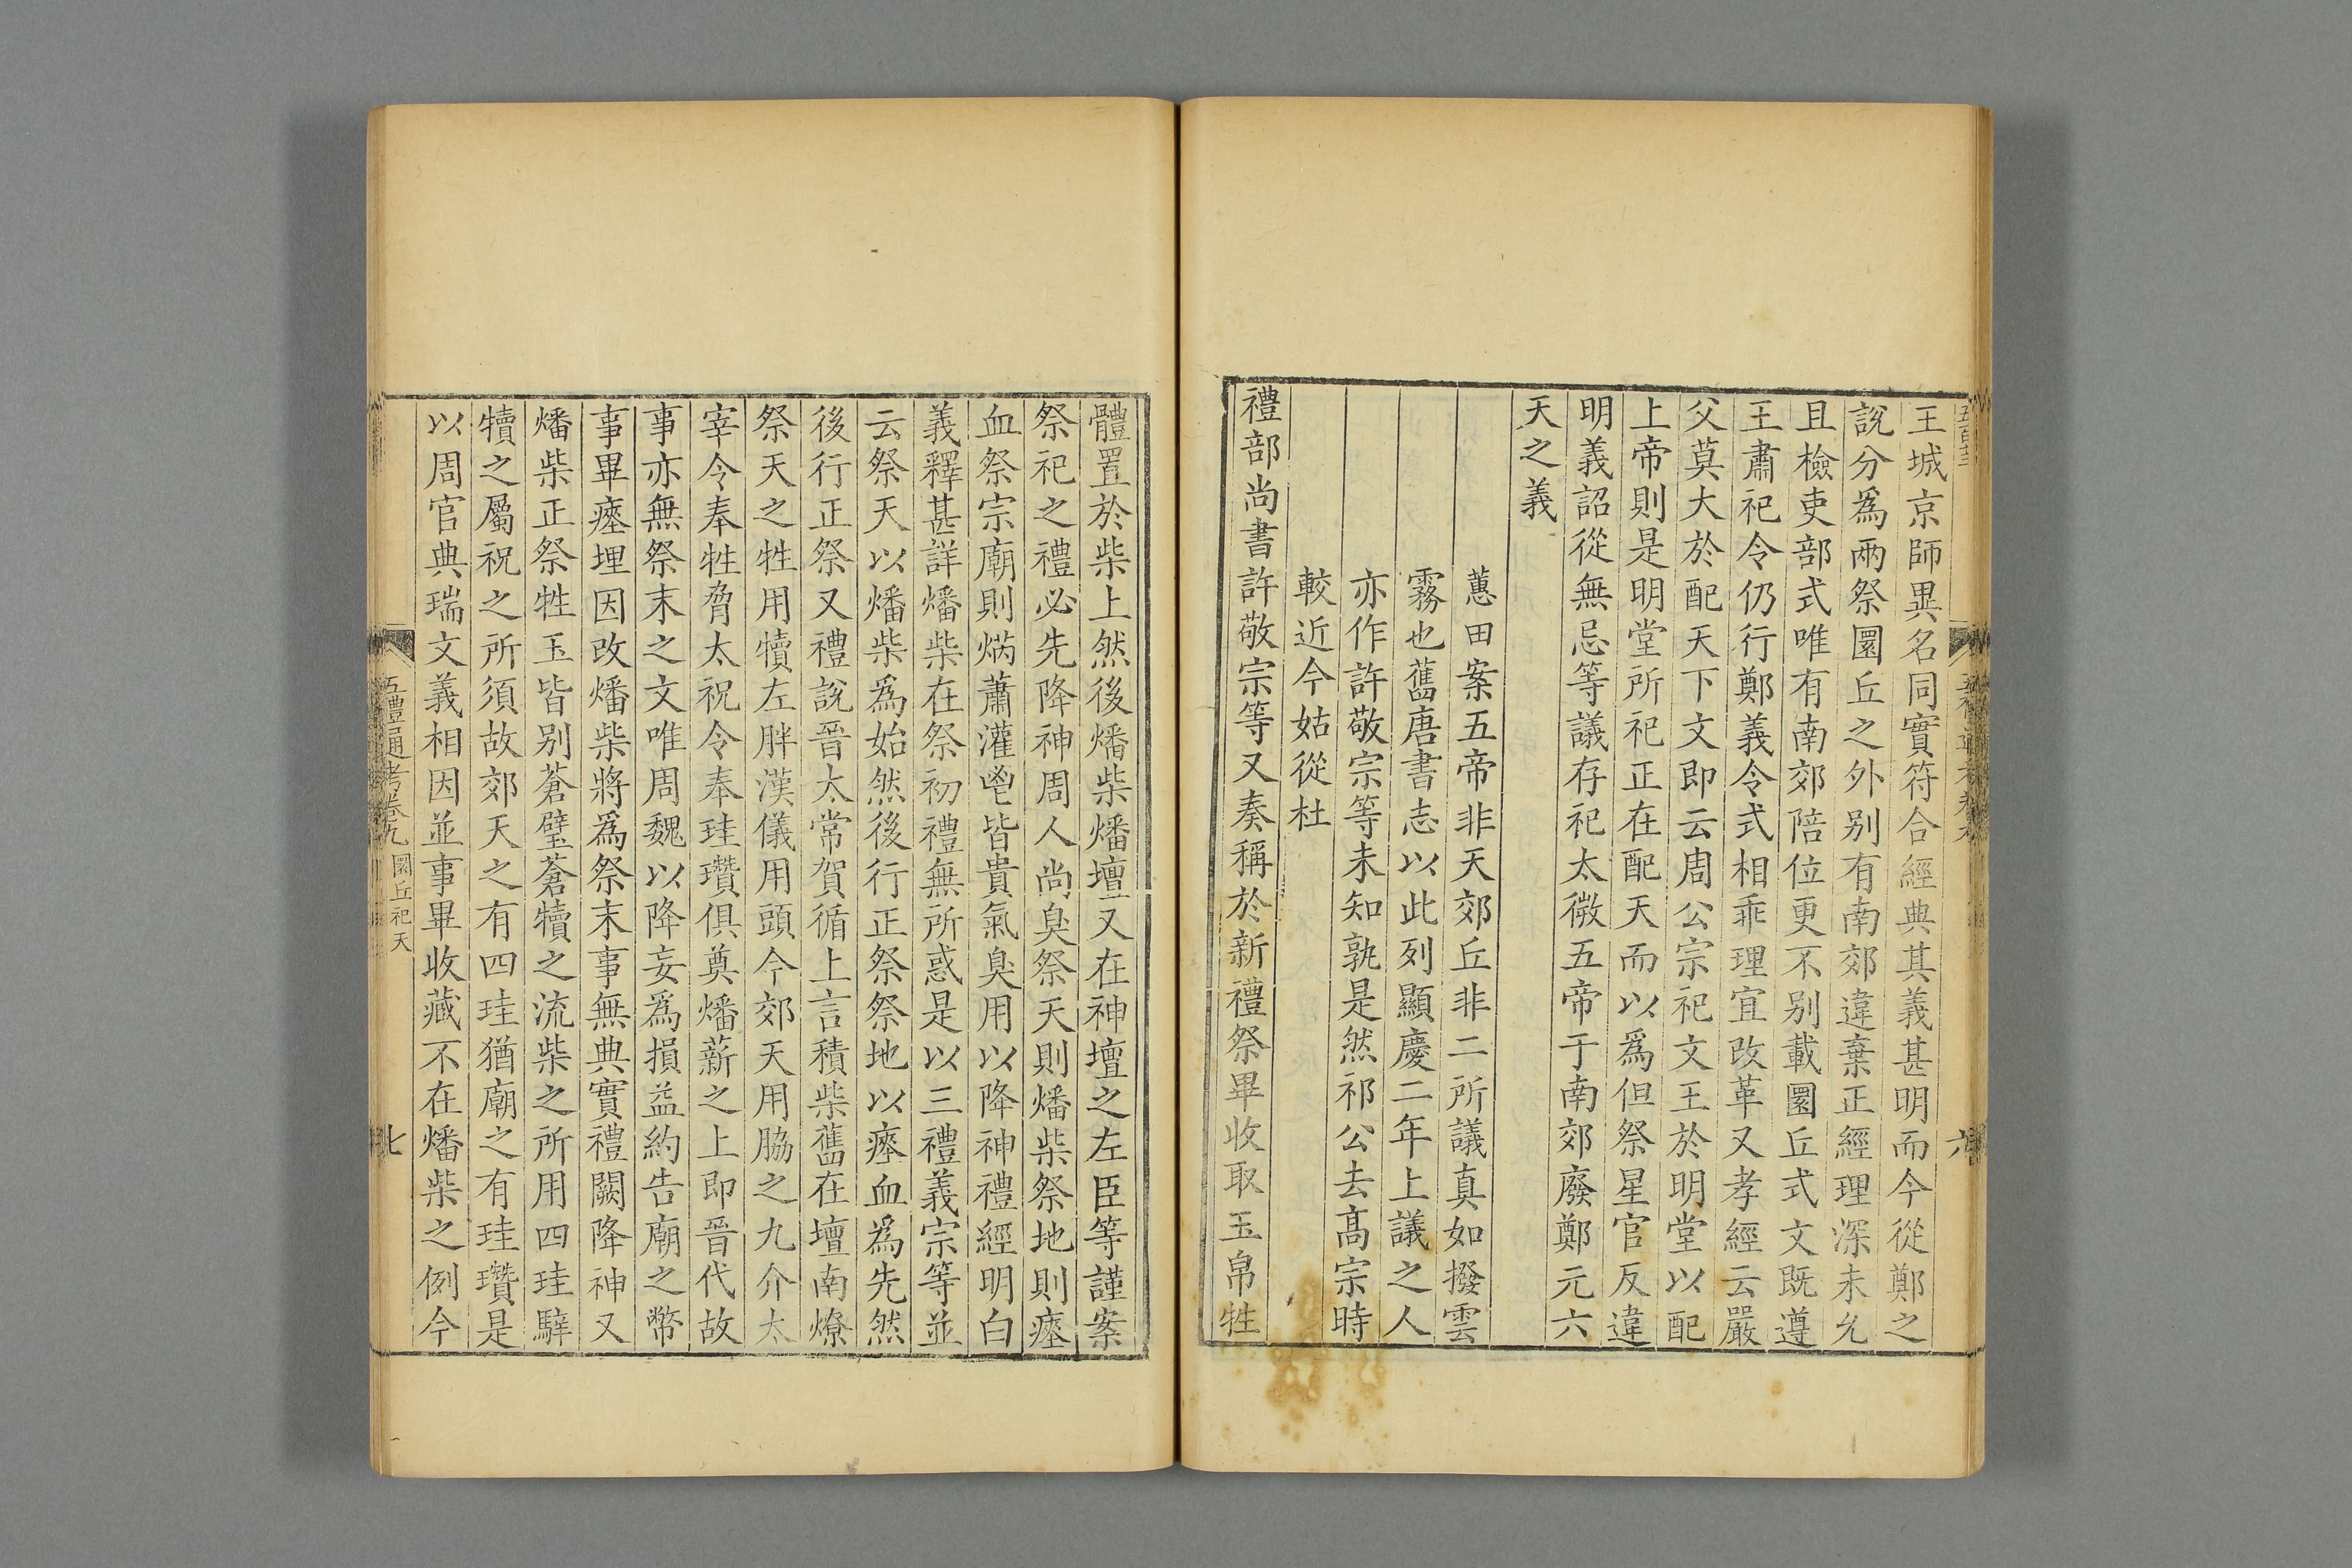 王城京師異名同實符合經典其義甚明而今從鄭之
說分爲兩祭圜丘之外别有南郊違棄正經理深未允
且檢吏部式唯有南郊陪位更不别載圜丘式文既遵
王肅祀令仍行鄭義令式相乖理宜改革又孝經云嚴
父莫大於配天下文即云周公宗祀文王於明堂以配
上帝則是明堂所祀正在配天而以爲但祭星官反違
明義詔從無忌等議存祀太微五帝于南郊廢鄭元六
天之義
蕙田案五帝非天郊丘非二所議真如撥雲
霧也舊唐書志以此列顯慶二年上議之人
亦作許敬宗等未知孰是然祁公去髙宗時
較近今姑從杜
禮部尚書許敬宗等又奏稱於新禮祭畢收取玉帛牲
體置於柴上然後燔柴燔壇又在神壇之左臣等謹案
祭祀之禮必先降神周人尚臭祭天則燔柴祭地則瘞
血祭宗廟則焫蕭灌鬯皆貴氣臭用以降神禮經明白
義釋甚詳燔柴在祭初禮無所惑是以三禮義宗等並
云祭天以燔柴爲始然後行正祭祭地以瘞血爲先然
後行正祭又禮說晉太常賀循上言積柴舊在壇南燎
祭天之牲用犢左胖漢儀用頭今郊天用脇之九介太
宰令奉牲脅太祝令奉珪瓚俱奠燔薪之上即晉代故
事亦無祭末之文唯周魏以降妄爲損益約告廟之幣
事畢瘞埋因改燔柴將爲祭末事無典實禮闕降神又
燔柴正祭牲玉皆别蒼璧蒼犢之流柴之所用四珪騂
犢之屬祝之所須故郊天之有四珪猶廟之有珪瓚是
以周官典瑞文義相因並事畢收藏不在燔柴之例今
五禮通考卷九 圜丘祀天 七